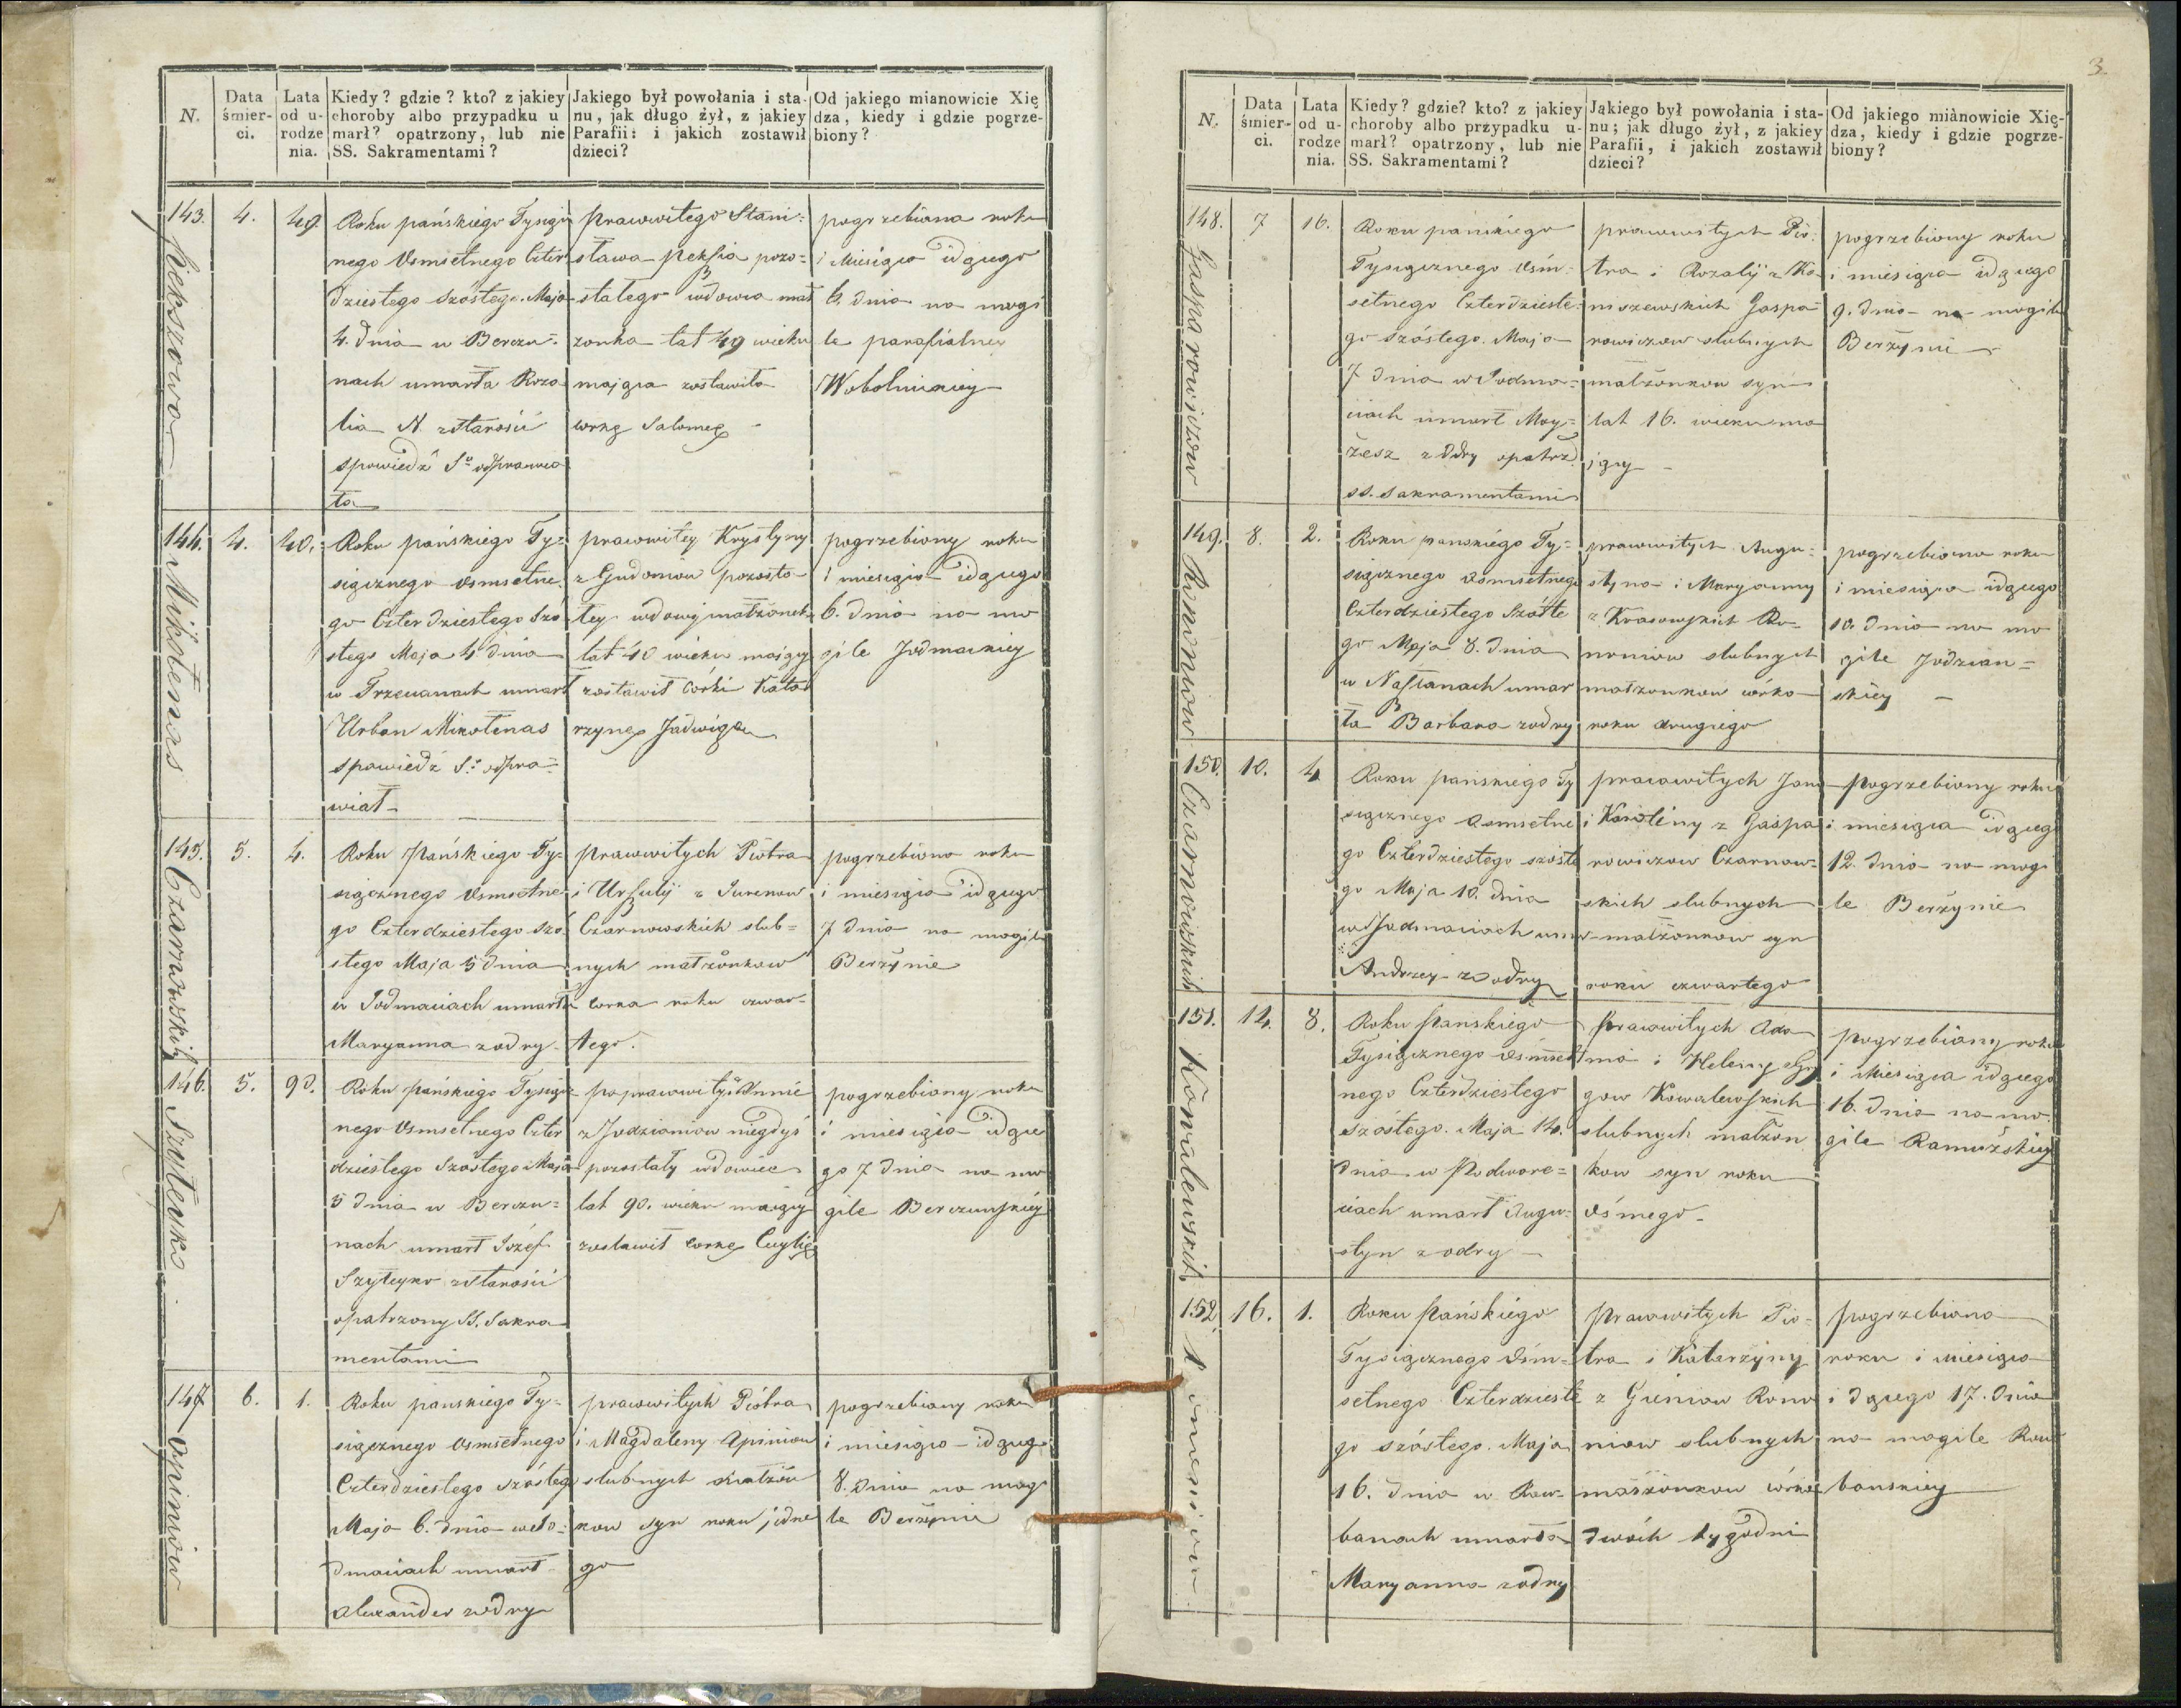 3.
N.
Data śmier-ci.
Lata od u-rodze nia.
Kiedy? gdzie? kto? z jakiey
choroby albo przypadku u
marł? opatrzony, lub nie
SS. Sakramentami?
Jakiego był powołania i sta-
nu, jak długo żył, z jakiey
Parafii: i jakich zostawił
dzieci?
Od jakiego mianowicie Xię
dza, kiedy i gdzie pogrze-
biony?
143.
4.
49.
Roku pańskiego Tysiącz
nego Osmsetnego Czter
dziestego szóstego. Maja
4. dnia w Berczu-
nach umarła Roza
lia N. z starości
spowiedź S. odprawia
ła
prawowitego Stani-
sława Pekszia pozo-
stałego wdowca mał
żonka lat 49 wieku
mająca zostawiła
corkę Salomeę
pogrzebiona roku
i Miesiąca idącego
6. dnia na mogi
le parafialney
Wobolnickiey
144. Mikotenas
4.
40.
Roku pańskiego Ty-
siącznego osmsetne
go Czterdziestego Szo
stego Maja 4. dnia
w Trzeuanach umarł
Urban Mikotenas
spowiedź S. odpra-
wiał
prawowitey Krystyny
z Gudoniow pozosta-
łey wdowy małżonek
lat 40 wieku maiący
zostawił córki Kata
rzynę Jadwigę
pogrzebiony roku
i miesiąca idącego
6. dnia na mo
gile Jodmackiey
145. Czarnowskich
5.
4.
Roku Pańskiego Ty-
siącznego Osmsetne
go Czterdziestego szo
stego Maja 5 dnia
w Jodmaciach umarła
Maryanna z odry
Prawowitych Piotra
i Urszuly z Jurenow
Czarnowskich slub-
nych małżonkow
corka roku czwar-
tego.
pogrzebiona roku
i miesiąca idącego
7 dnia na mogile
Berżynie
146. Szyleyko
5.
90.
Roku Pańskiego Tysiącz
nego Osmsetnego Czter
dziestego Szostego Maja
5 dnia w Berczu-
nach umarł Jozef
Szyleyko z starości
opatrzony SS. Sakra
mentami
po prawowitey Annie
z Jodzianiow niegdyś
pozostały wdowiec
lat 90. wieku maiący
zostawił corkę Cecylię
pogrzebiony roku
i miesiąca idące
go 7 dnia na mo
gile Berczunskiey
147 Opiniow
6.
1.
Roku pańskiego Ty-
siącznego Osmsetnego
Czterdziestego szóstego
Maja 6. dnia w Jo-
dmaciach umarł
Alexander z odry
prawowitych Piotra
i Magdaleny Apiniow
slubnych małżon
kow syn roku jedne
go
pogrzebiony roku
i miesiąca idącego
8. dnia na mogi
le Berżynie
N.
Data śmier-ci.
Lata od u-rodze nia.
Kiedy? gdzie? kto? z jakiey
choroby albo przypadku u-
marł? opatrzony, lub nie
SS. Sakramentami?
Jakiego był powołania i sta-
nu; jak długo żył, z jakiey
Parafii, i jakich zostawił
dzieci?
Od jakiego mianowicie Xię-
dza, kiedy i gdzie pogrze-
biony?
148. Gasparowiczow
7
16.
Roku pańskiego
Tysiącznego Osm-
setnego Czterdzieste-
go szóstego. Maja
7 dnia w Jodma-
ciach umarł Moy-
żesz z odry opatrz.
ss. sakramentami
prawowitych Pio-
tra i Rozalij z Ko
moszewskich Gaspa
rowiczow slubnych
małżonkow syn
lat 16. wieku ma
jący
pogrzebiony roku
i miesiąca idącego
9. dnia na mogile
Berżynie
149.
8.
2.
Roku pańskiego Ty-
siącznego osmsetnego
Czterdziestego Szóste
go Maja 8. dnia
umar
ła Barbara z odry
prawowitych Augu-
styna i Maryanny
z Krasowskich Ro-
noniow slubnych
małżonkow córka
roku drugiego
pogrzebiona roku
i miesiąca idącego
10. dnia na mo
gile Jodzian-
skiey
150. Czarnowskich
10.
4
Roku pańskiego Ty
siącznego osmsetne
go Czterdziestego szóste
go Maja 10. dnia
w Jodmaciach umar
Andrzey z odry
prawowitych Jana
i Karoliny z Gaspa
rowiczow Czarnow-
skich slubnych
małżonkow syn
roku czwartego
pogrzebiony roku
i miesiąca idącego
12. dnia na mogi
le Berżynie
151. Kowalewskich
14.
8.
Roku Pańskiego
Tysiącznego osmset
nego Czterdziestego
szóstego. Maja 14.
dnia w Podware-
ciach umarł Augu-
styn z odry
Prawowitych Ada
ma i Heleny
gow Kowalewskich
slubnych małżon
kow syn roku
osmego
pogrzebiony roku
i Miesiąca idącego
16. dnia na mo
gile Ramužskiey
152. Rononiow
16.
1.
Roku Pańskiego
Tysiącznego Osm-
setnego Czterdzieste
go szóstego. Maja
16. dnia w Raw-
banach umarła
Maryanna z odry
Prawowitych Pio-
tra i Katarzyny
z Gieniow Rono
niow slubnych
małżonkow córka
dwóch tygodni
pogrzebiona
roku i miesiąca
idącego 17. dnia
na mogile Raw
banskiey